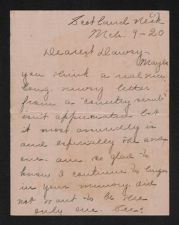 Scotland Neck
Mch. 9-20
Dearest Dawsy-
Maybe
you think a real nice
long, newsy letter
from a "country
isn't appreciated but
it most assuredly is
and especially the
one. am so glad to
know I continue to linger
in your memory did
not want to be the
only one.